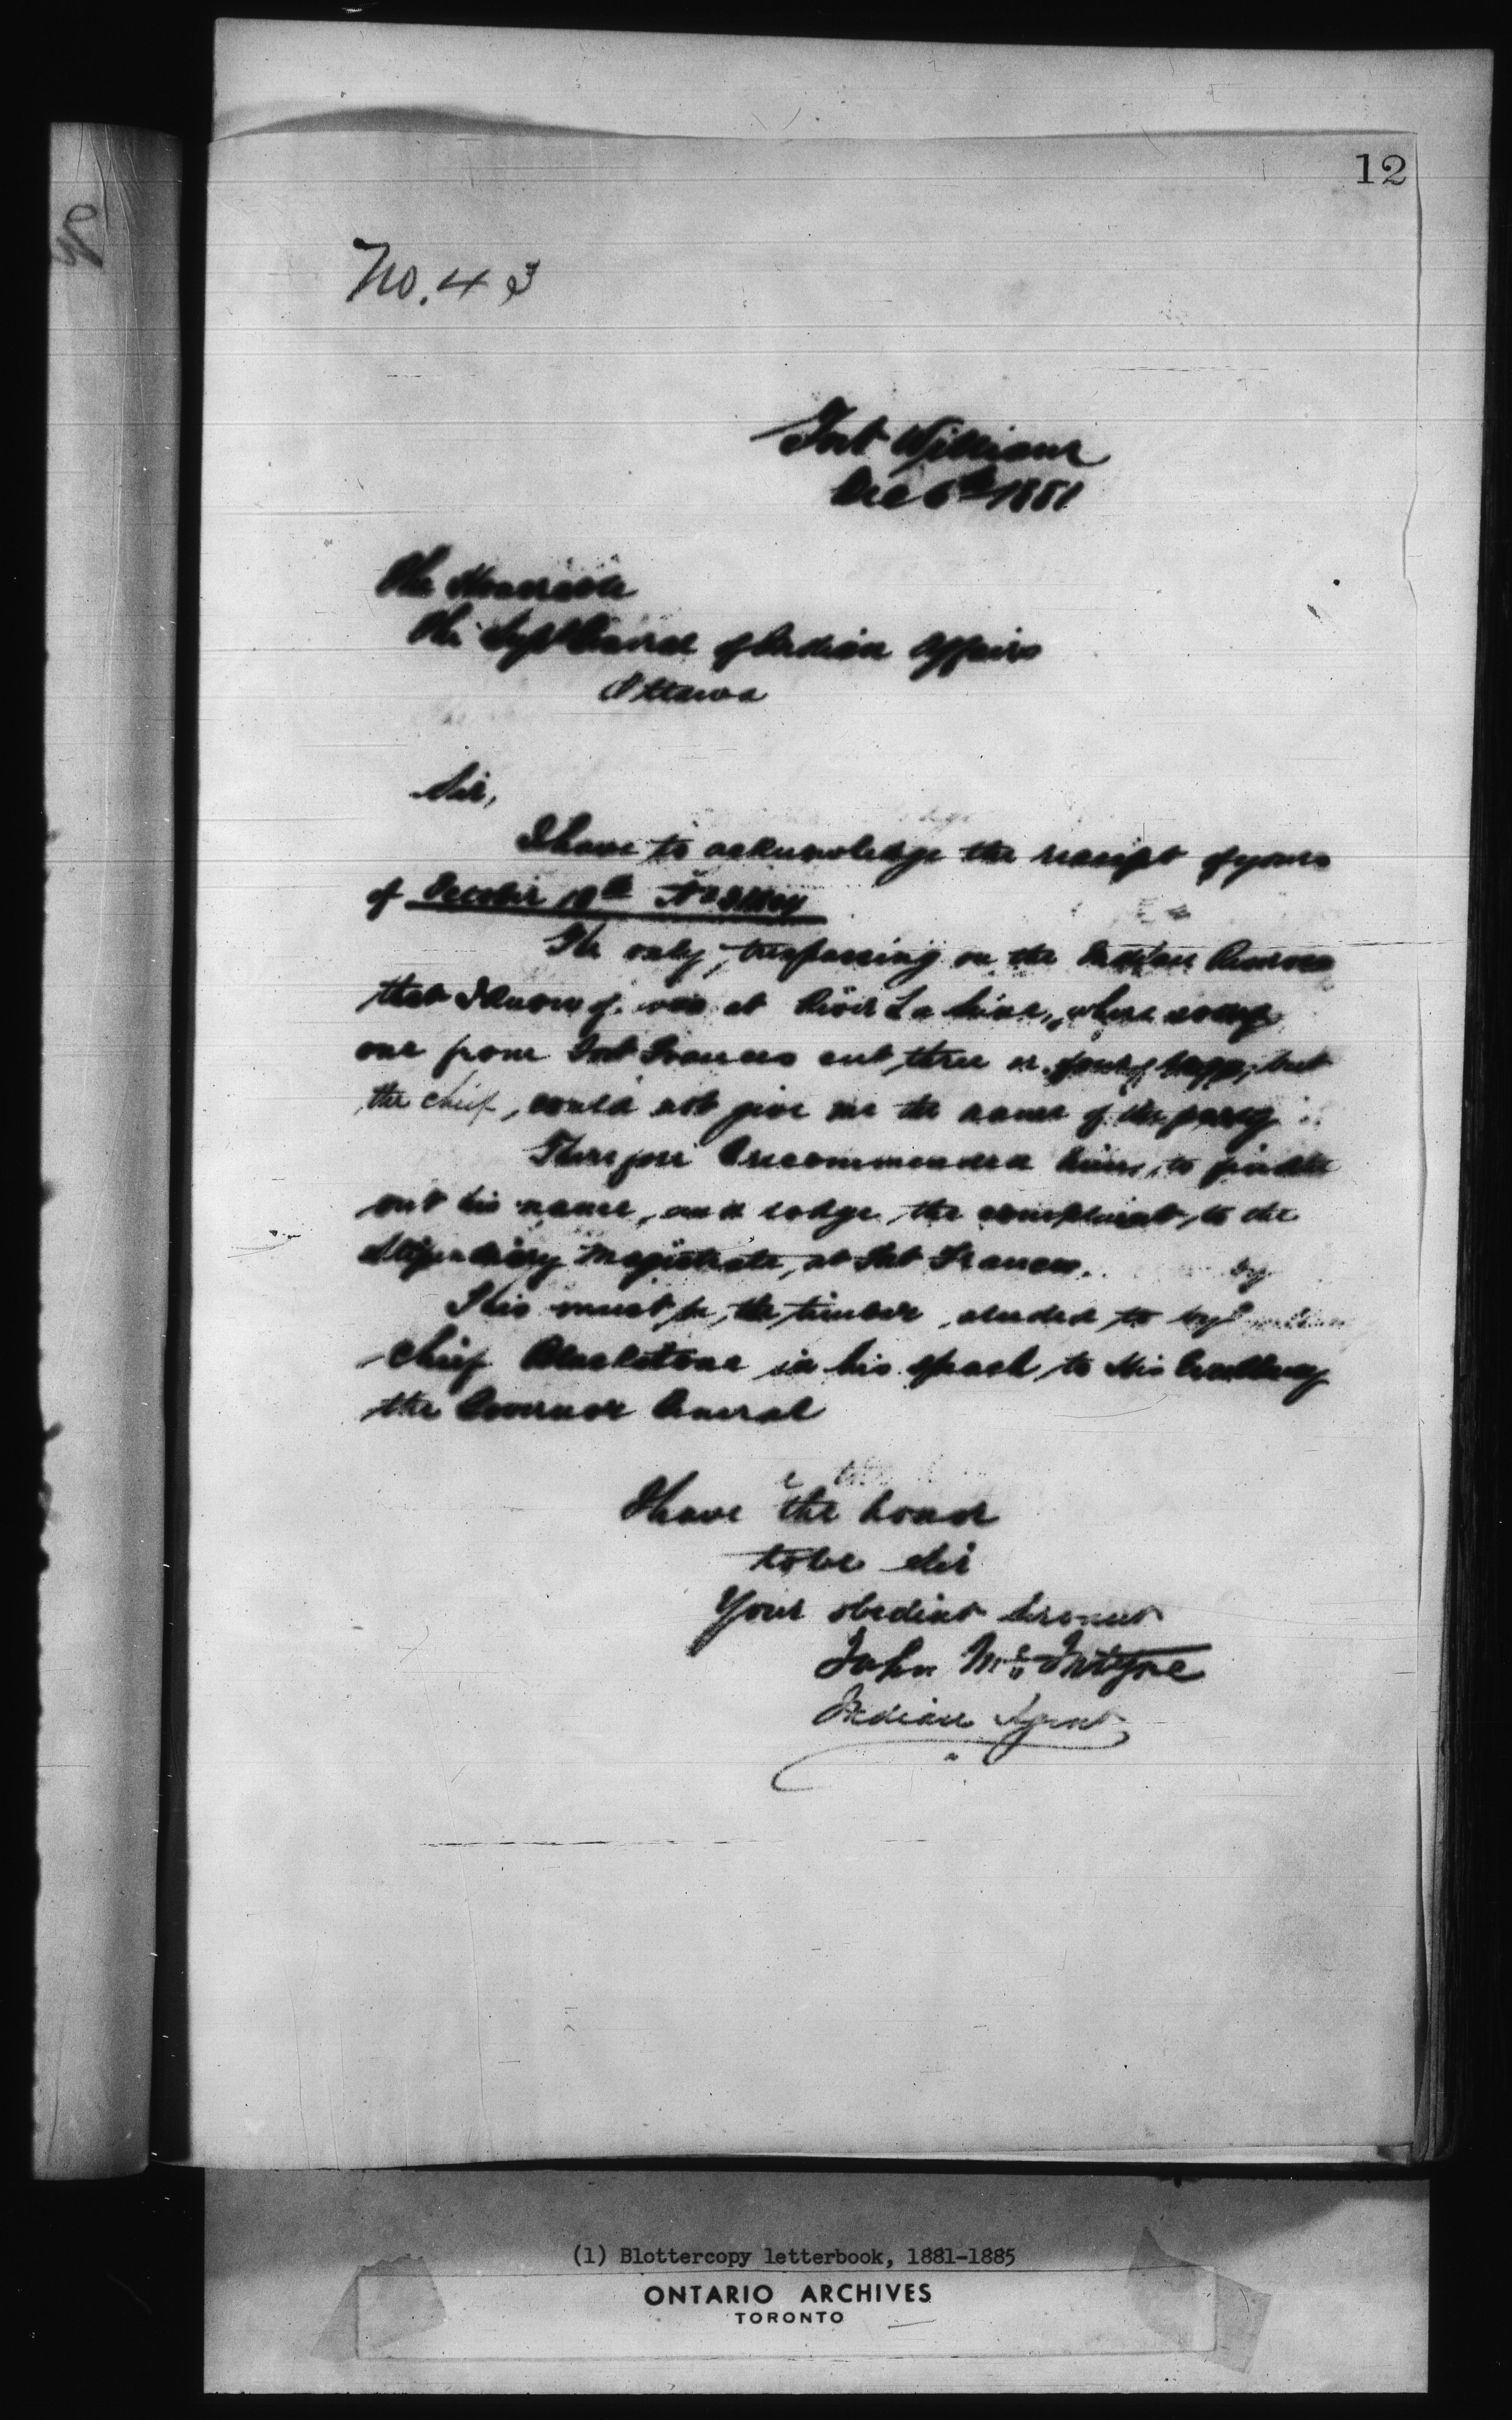 12
No. 43
Fort William
Dec 6th 1881
The Honorable
The Supt General of Indian Affairs
Ottawa
Sir,
I have to acknowledge the receipt of yours
of October 18th No
The only, trespassing on the Indian Reserves
that I know of. was at Rivir La Seine, where some
one from Fort Frances cut three or four of; but
the chief, could not give me the name of the party
Therefore I recommended him, to find
out his name, and lodge the complaint, to the
Stipendiary Magistrate, at Fort Frances.
This must be, the timber, aluded to by
Chief Blackstone in his speach to His Excellency
the Governor General
I have the honor
to be Sir
Your obedient Servant
John Mc Intyre
Indian Agent
(1) Blottercopy letterbook, 1881-1885
ONTARIO ARCHIVES
TORONTO